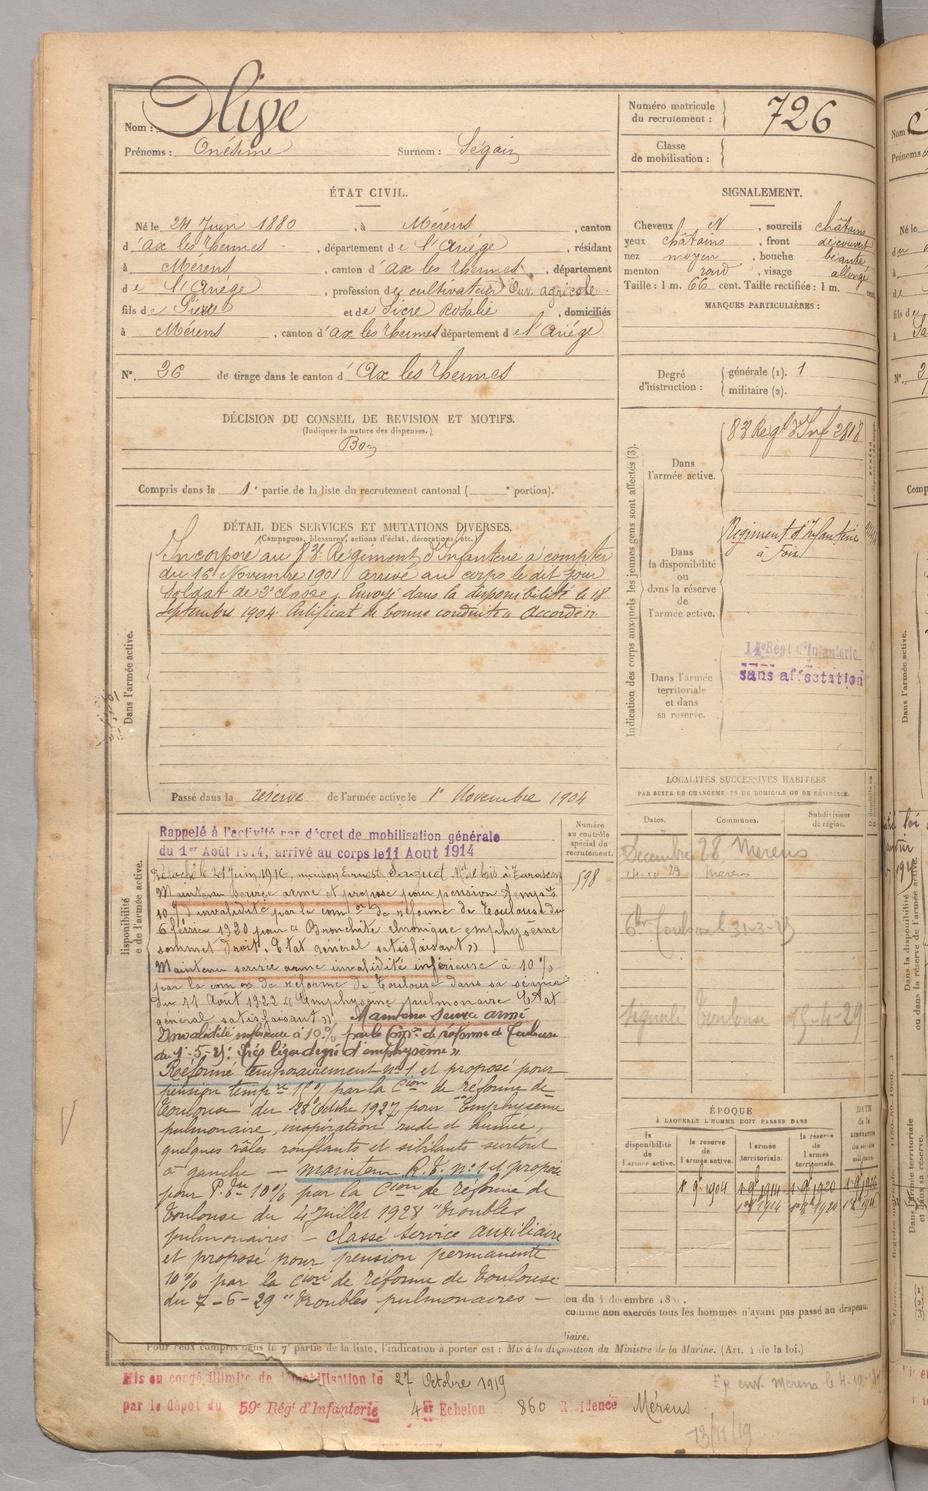 Nom : Olive
Prénoms : Onésime Surnom : Ségair
Numéro matricule du recrutement : 726
Classe de mobilisation :
ÉTAT CIVIL.
Né le 24 Juin 1880, à Mérens, canton
d'ax les thermes, département de l'Ariége, résidant
à Mérens, canton d'ax les thermes, département
de l'Ariége, profession de cultivateur Ouv. agricole
fils de Pierre et de Sicre Rosalie, domiciliés
à Mérens, canton d'ax les thermes département de l'Ariége
N° 36 de tirage dans le canton d'Ax les thermes
SIGNALEMENT.
Cheveux N, sourcils châtains
yeux châtains, front découvert
nez moyen, bouche béante
menton rond, visage allongé
Taille : 1 m. 66 cent. Taille rectifiée : 1 m. cent.
MARQUES PARTICULIÈRES :
Degré d'instruction : générale (1). 1
militaire (2).
DÉCISION DU CONSEIL DE REVISION ET MOTIFS.
(Indiquer la nature des dispenses.)
Bon
Compris dans la 1e partie de la liste du recrutement cantonal ( e portion).
DÉTAIL DES SERVICES ET MUTATIONS DIVERSES.
(Campagnes, blessures, actions d'éclat, décorations, etc.)
Incorporé au 83 Régiment d'Infanterie à compter
du 16 Novembre 1901 arrivé au corps le dit jour
Soldat de 2e classe. Envoyé dans la disponibilité le 18
Septembre 1904. Certificat de bonne conduite accordé
Dans l'armée active.
Passé dans la réserve de l'armée active le 1er Novembre 1904
Indication des corps auxquels les jeunes gens sont affectés (3).
Dans l'armée active.
83 Régt d'Inf 2818
Dans la disponibilité ou dans la réserve de l'armée active.
Régiment d'Infanterie
à Foix
Dans l'armée territoriale et dans sa reserve.
14e Régt d'Infanterie
sans affectation
LOCALITÉS SUCCESSIVES HABITÉES
PAR SUITE DE CHANGEMENTS DE DOMICILE OU DE RÉSIDENCE.
Dates. Communes. Subdivisions de région.
Decembre 28 Merens
Merens
Signalé Toulouse 15-4-29
Numéro au contrôle spécial du recrutement.
598
Rappelé à l'activité par décret de mobilisation générale
du 1er Août 1914, arrivé au corps le 11 Aout 1914
Détaché le 21 juin 1916, maison Ernest Saquet Md de bois à Tarascon
Maintenu service armé et proposé pour pension tempre
10% d'invalidité par la comon de réforme de Toulouse du
6 février 1920 pour « Bronchite chronique emphysème
sommet droit. Etat général satisfaisant »
Maintenu service armé invalidité inférieure à 10%
par la comon de réforme de Toulouse dans sa séance
du 11 Août 1922 « Emphysème pulmonaire Etat
général satisfaisant ». Maintenu service armé
Invalidité inférieure à 10% par la Comon de réforme de Toulouse
du 1-5-25. « Très léger degré d'emphysème »
Réformé temporairement n° 1 et proposé pour
pension tempre 10% par la Cion de réforme de
Toulouse du 28 Octobre 1927 pour "Emphysème
pulmonaire, inspiration rude et humée,
quelques râles ronflants et sibilants surtout
à gauche — maintenu R.T. n° 1 et proposé
pour P. Tre 10% par la Cion de réforme de
Toulouse du 4 Juillet 1928 "troubles
pulmonaires — classé service auxiliaire
et proposé pour pension permanente
10% par la Cion de réforme de Toulouse
du 7-6-29 "troubles pulmonaires —
ÉPOQUE
À LAQUELLE L'HOMME DOIT PASSER DANS
la disponibilité de l'armée active. la réserve de l'armée active. l'armée territoriale. la réserve de l'armée territoriale. DATE de la LIBÉRATION
1er 9b 1904
comme non exercés tous les hommes n'ayant pas passé au drapeau.
Pour ceux compris dans la 7e partie de la liste, l'indication à porter est : Mis à la disposition du Ministre de la Marine. (Art. 4 de la loi.)
Mis en congé illimité de démobilisation le 27 Octobre 1919
par le dépôt du 59e Rég d'Infanterie 4e Echelon 860 Résidence Mérens
13/11/19